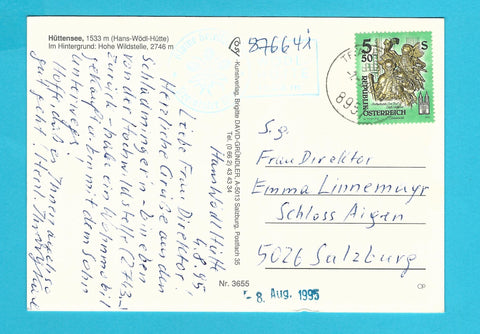 Hüttensee, 1533 m (Hans-Wödl-Hütte)
Im Hintergrund: Hohe Wildstelle, 2746 m
Hans Wödl Hütte
4.8.95
Liebe Frau Direktor!
Herzliche Grüße aus den
Schladmingern - bin eben
von der Hochwildstelle (2743)
zurück - habe ein Wohnmobil
gekauft u. bin mit dem Sohn
unterwegs.
Hoffe, daß es Ihnen auch so
gut geht! Herzl. Ihr
Kunstverlag, Brigitte DAVID-GRÜNDLER, A-5013 Salzburg, Postfach 35
Tel. (0 66 2) 43 43 34
Nr. 3655
87664i
5 50 S
REPUBLIK
ÖSTERREICH
895
S. g.
Frau Direktor
Emma Linnemayr
Schloss Aigen
5026 Salzburg
- 8. Aug. 1995